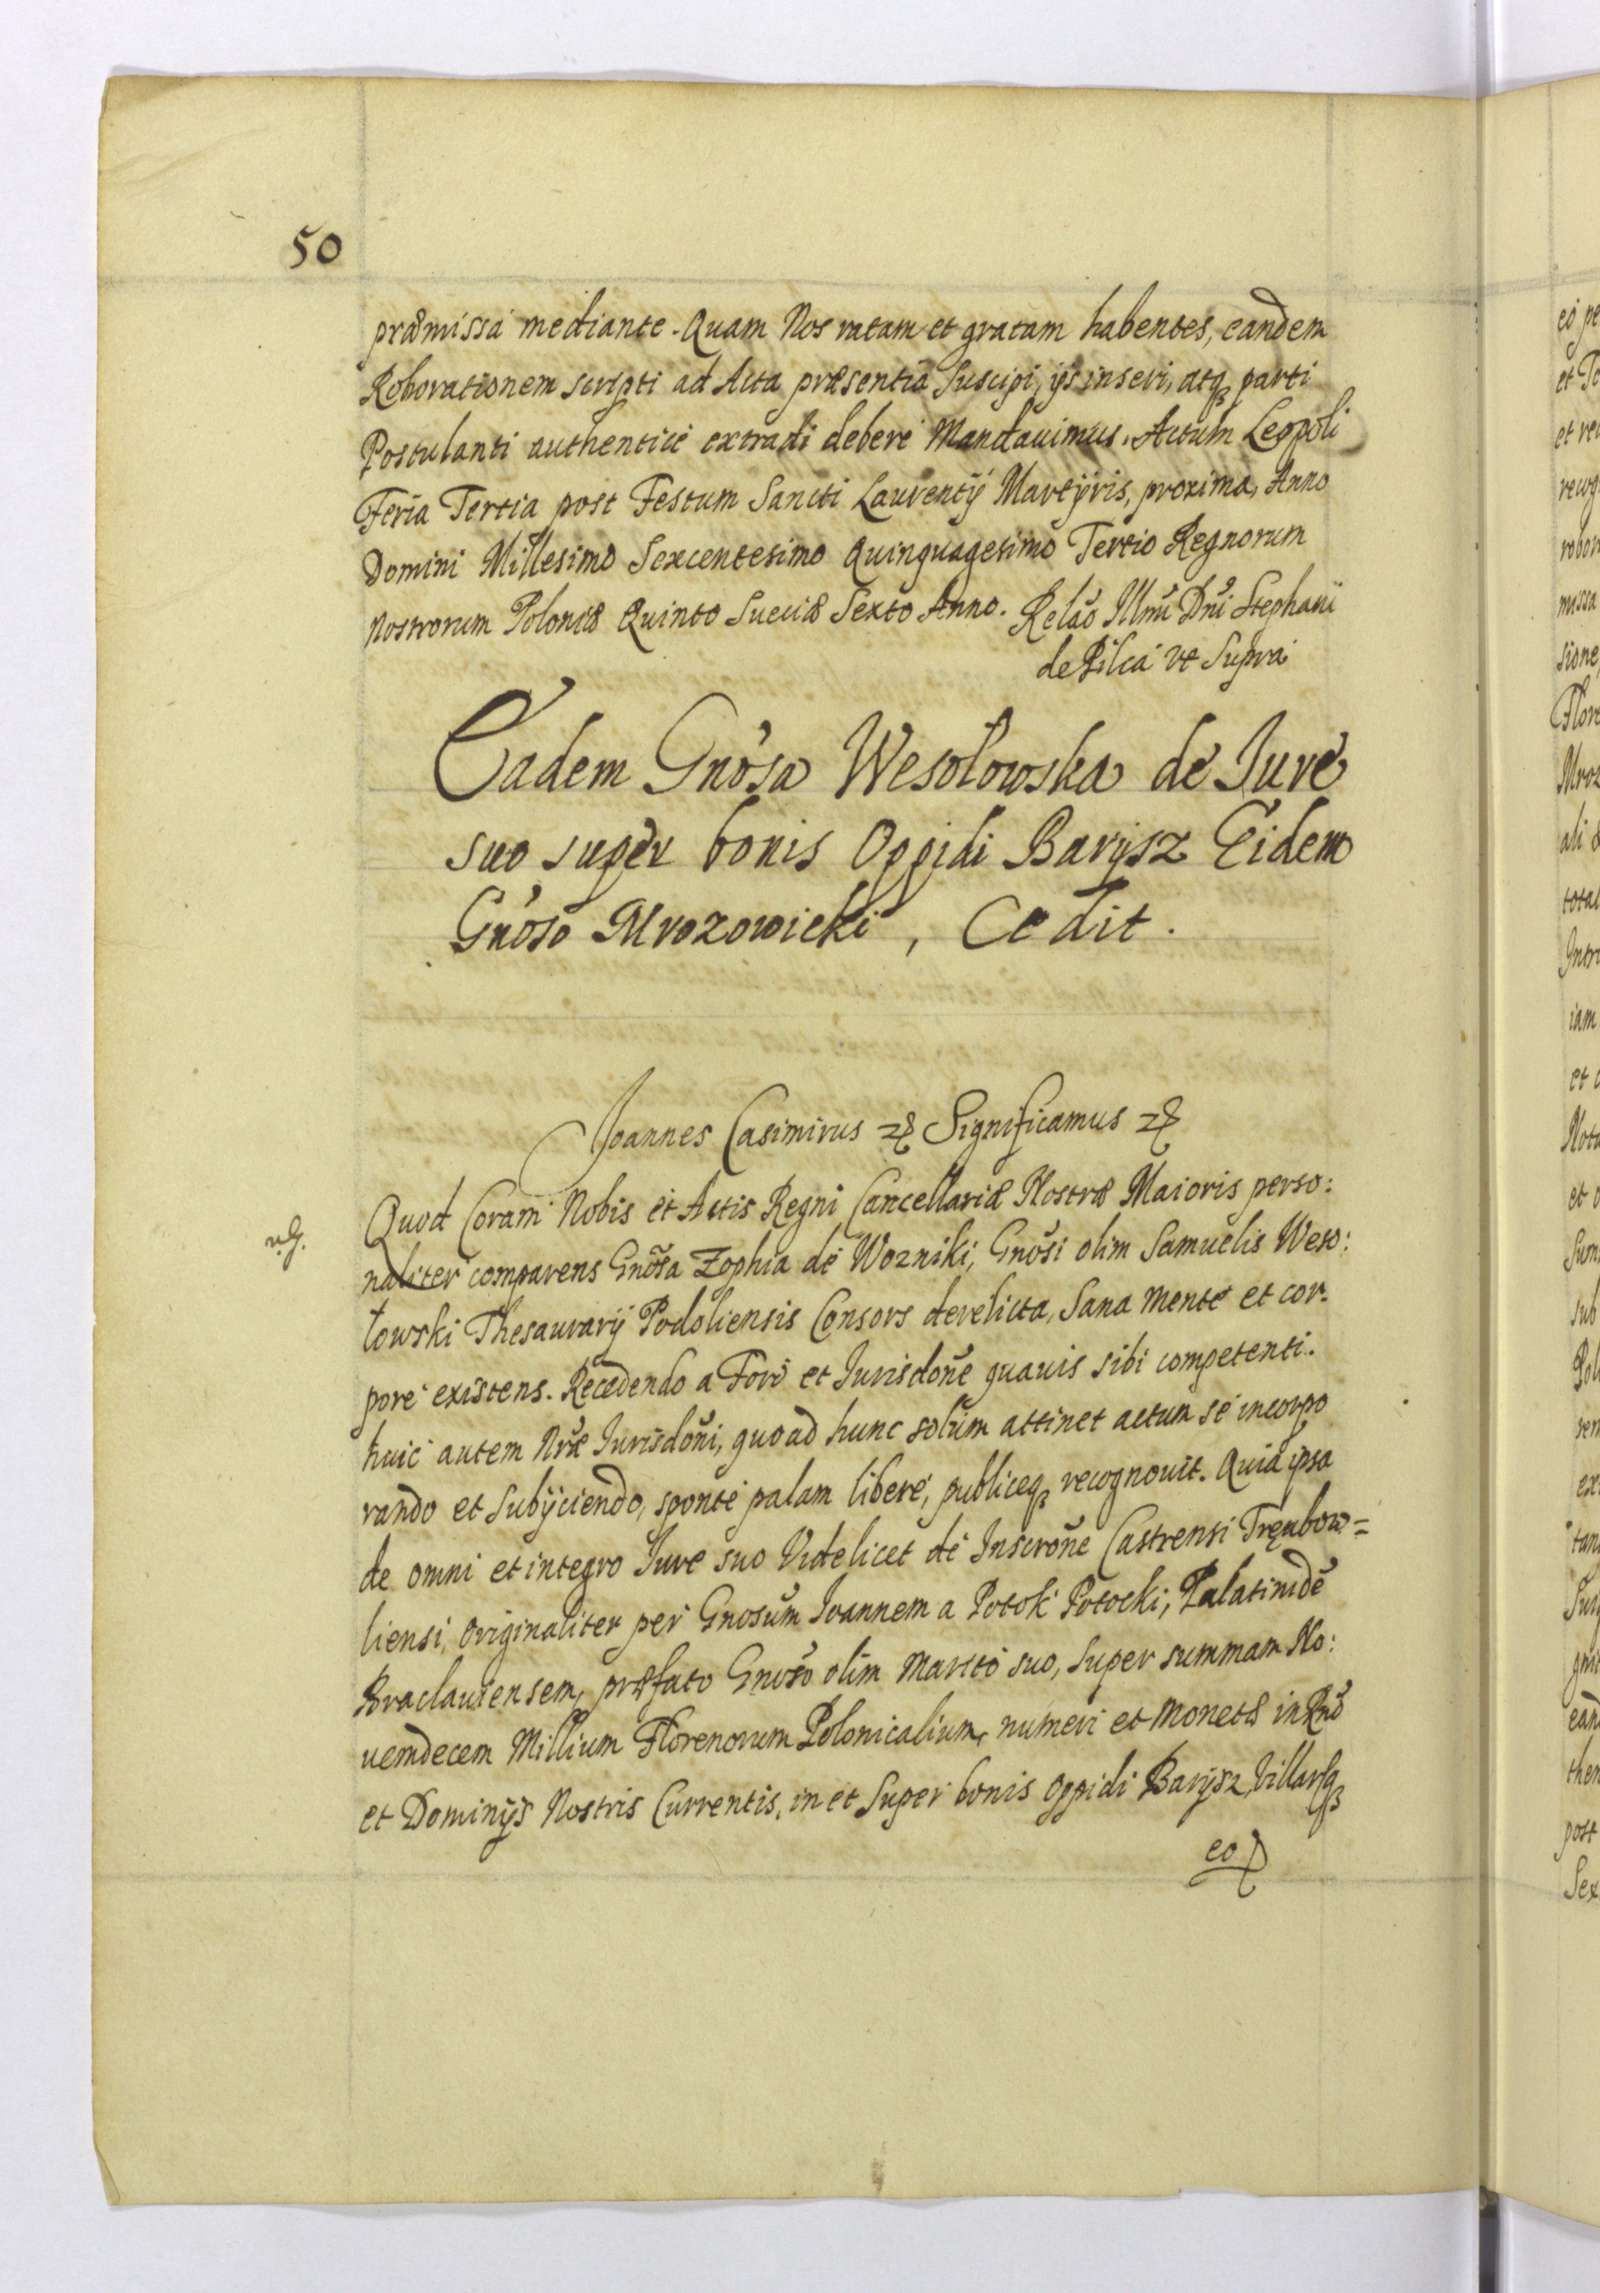 50
præmissa mediante. Quam Nos ratam et gratam habentes, eandem
Roborationem scripti ad Acta præsentia Suscipi, ijs inseri, atq3 parti
Postulanti authentice extradi debere Mandauimus. Actum Leopoli
Feria Tertia post Festum Sancti Laurentij Martyris, proxima, Anno
Domini Millesimo Sexcentesimo Quinquagesimo Tertio Regnorum
Nostrorum Poloniæ Quinto Sueciæ Sexto Anno. Relão Illmi Dni Stephani
de Pilca ut Supra
Eadem Gnosa Wesołowska de Iure
suo super bonis Oppidi Barysz Eidem
Gnoso Mrozowicki, Cedit.
Joannes Casimirus etc Significamus etc
Quod Coram Nobis et Actis Regni Cancellariæ Nostræ Maioris perso:
naliter comparens Gnosa Zophia de Wozniki, Gnosi olim Samuelis Weso:
łowski Thesaurarij Podoliensis Consors derelicta, Sana mente et cor-
pore existens. Recedendo a Foro et Jurisdone quauis sibi competenti.
huic autem Nræ Jurisdoni, quoad hunc solum attinet actum se incorpo
rando et Subijciendo, sponte palam libere, publiceq3 recognouit. Quia ipsa
de omni et integro Jure suo Videlicet de Inscrone Castrensi Trębow=
liensi, originaliter per Gnosum Joannem a Potok Potocki, Palatinidẽ
Braclauiensem, præfato Gnoso olim Marito suo, Super summam No:
uemdecem Millium Florenorum Polonicalium, numeri et Monetæ in Rno
et Dominijs Nostris Currentis, in et Super bonis Oppidi Barysz, Villarq3
eo